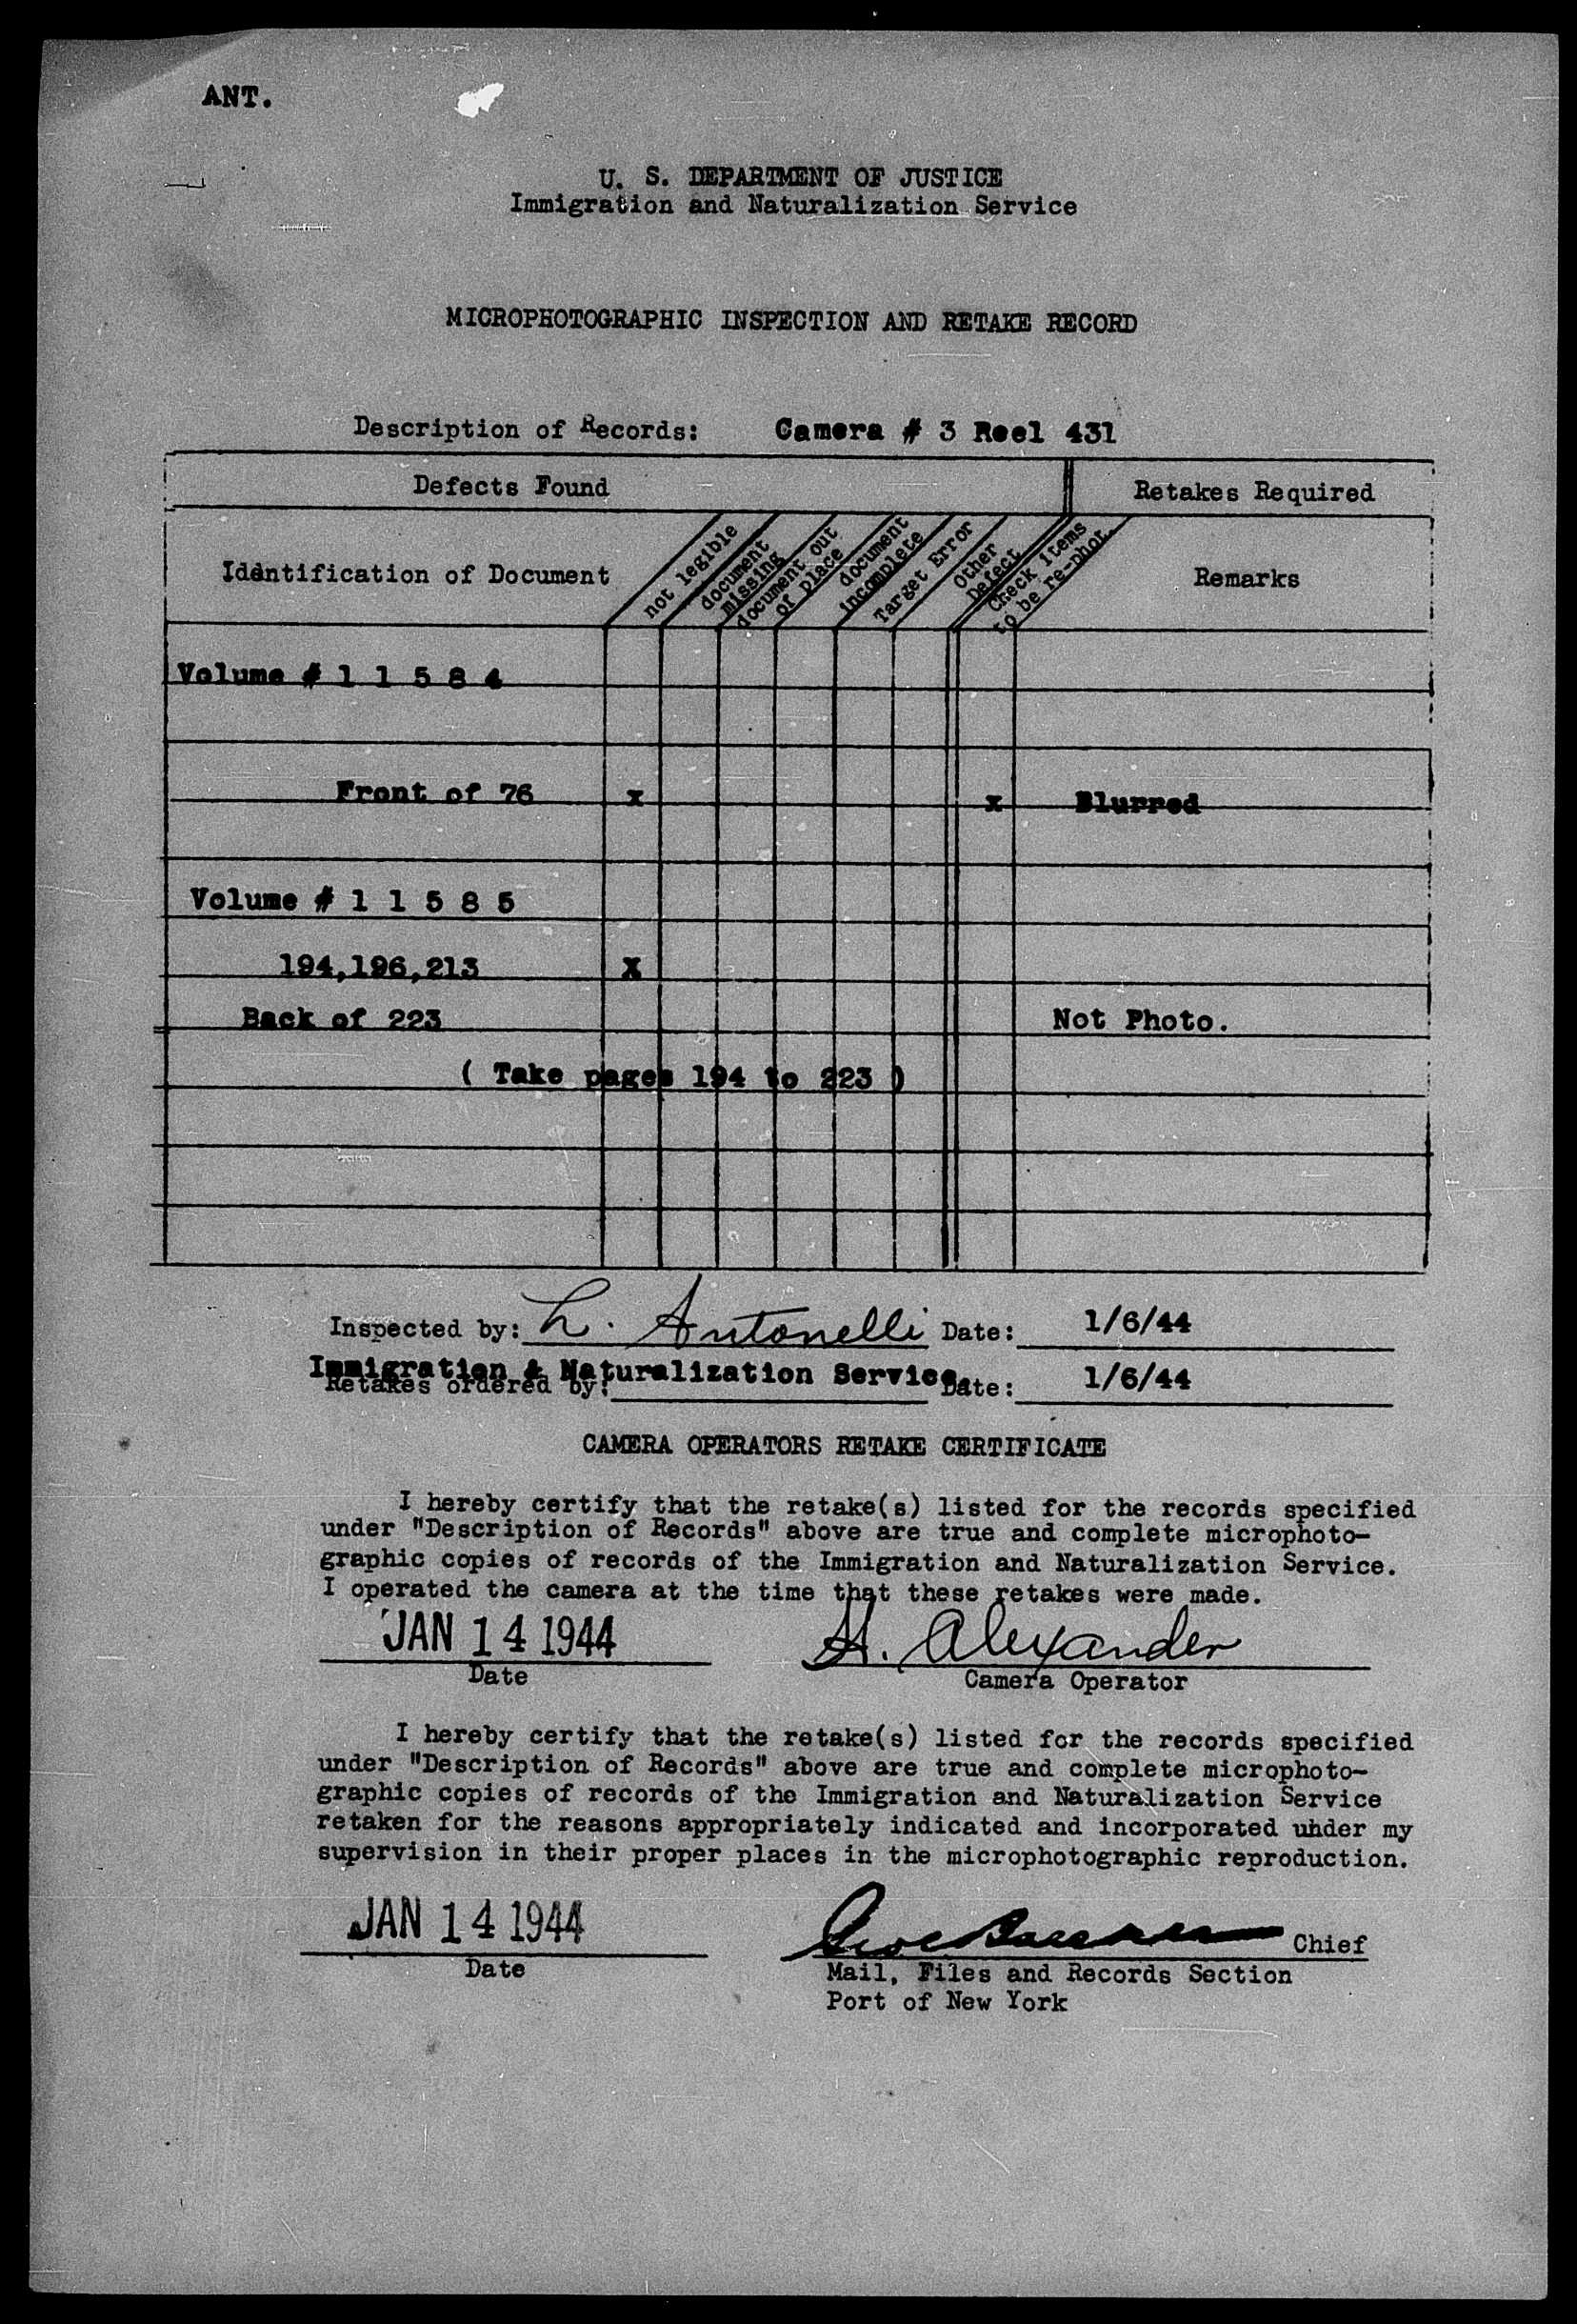 ANT.
U. S. DEPARTMENT OF JUSTICE
Immigration and Naturalization Service
MICROPHOTOGRAPHIC INSPECTION AND RETAKE RECORD
Description of Records: Camera # 3 Reel 431
Defects Found Retakes Required
Identification of Document
not legible
document
missing
document out
of place
document
incomplete
Target Error
Other
Defect
Check items
to be re-phot.
Remarks
Volume # 1 1 5 8 4
Front of 76 x x Blurred
Volume # 1 1 5 8 5
194,196,213 X
Back of 223 Not Photo.
( Take pages 194 to 223 )
Inspected by: L. Antonelli Date: 1/6/44
Immigration & Naturalization Service
Retakes ordered by: Date: 1/6/44
CAMERA OPERATORS RETAKE CERTIFICATE
I hereby certify that the retake(s) listed for the records specified
under "Description of Records" above are true and complete microphoto-
graphic copies of records of the Immigration and Naturalization Service.
I operated the camera at the time that these retakes were made.
JAN 14 1944 H. Alexander
Date Camera Operator
I hereby certify that the retake(s) listed for the records specified
under "Description of Records" above are true and complete microphoto-
graphic copies of records of the Immigration and Naturalization Service
retaken for the reasons appropriately indicated and incorporated under my
supervision in their proper places in the microphotographic reproduction.
JAN 14 1944 Chief
Date Mail, Files and Records Section
Port of New York